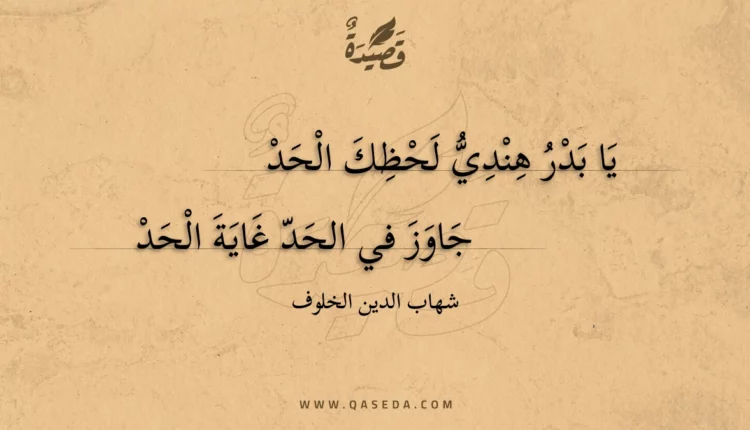 قَصِيْدَةٌ
يَا بَدْرُ هِنْدِيُّ لَحْظِكَ الْحَدْ
جَاوَزَ في الحَدّ غَايَةَ الْحَدْ
شهاب الدين الخلوف
WWW.QASEDA.COM